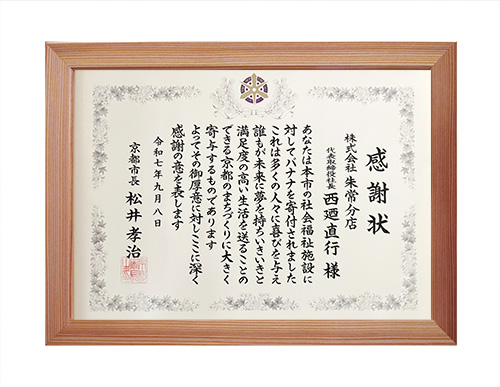 感謝状
株式会社 朱常分店
代表取締役社長 西廼直行 様
あなたは本市の社会福祉施設に
対してバナナを寄付されました
これは多くの人々に喜びを与え
誰もが未来に夢を持ちいきいきと
満足度の高い生活を送ることの
できる京都のまちづくりに大きく
寄与するものであります
よってその御厚意に対しここに深く
感謝の意を表します
令和七年九月八日
京都市長 松井孝治